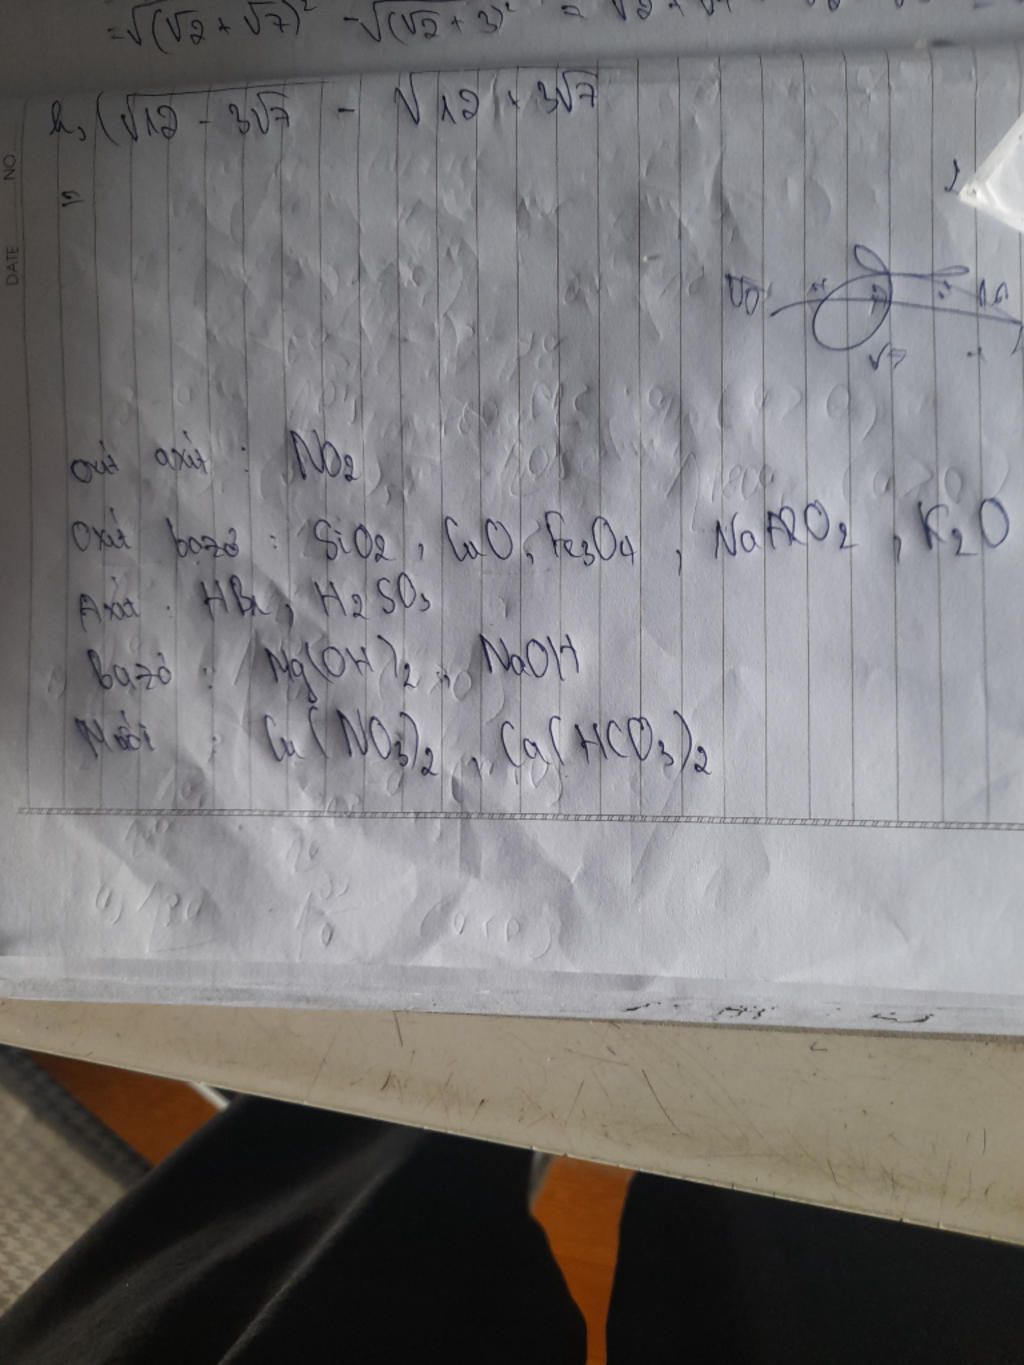 =√(√2 + √7)² - √(√2 + 3)² = √2 + √7
h, (√12 - 3√7 - √12 + 3√7
=
NO.
DATE
√7
oxit axit : NO2
Oxit bazơ : SiO2, CuO, Fe3O4, NaAlO2, K2O
Axit : HBr, H2SO3
bazơ : Mg(OH)2, NaOH
Muối : Cu(NO3)2, Ca(HCO3)2